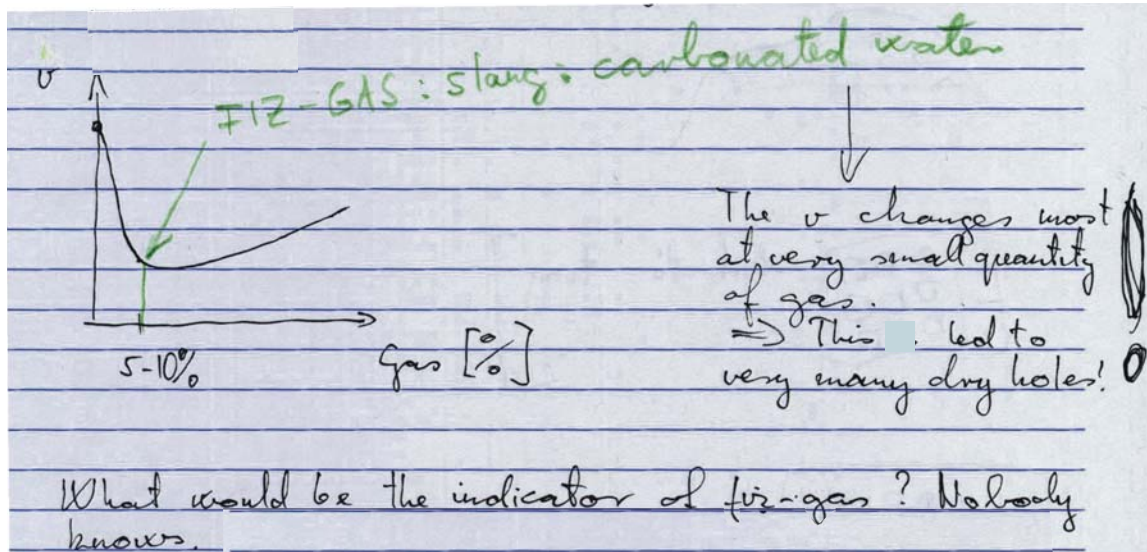 FIZ-GAS: slang: carbonated water
v
The v changes most
at very small quantity
of gas.
=> This led to
very many dry holes!
5-10%
Gas [%]
What would be the indicator of fiz-gas? Nobody
knows.